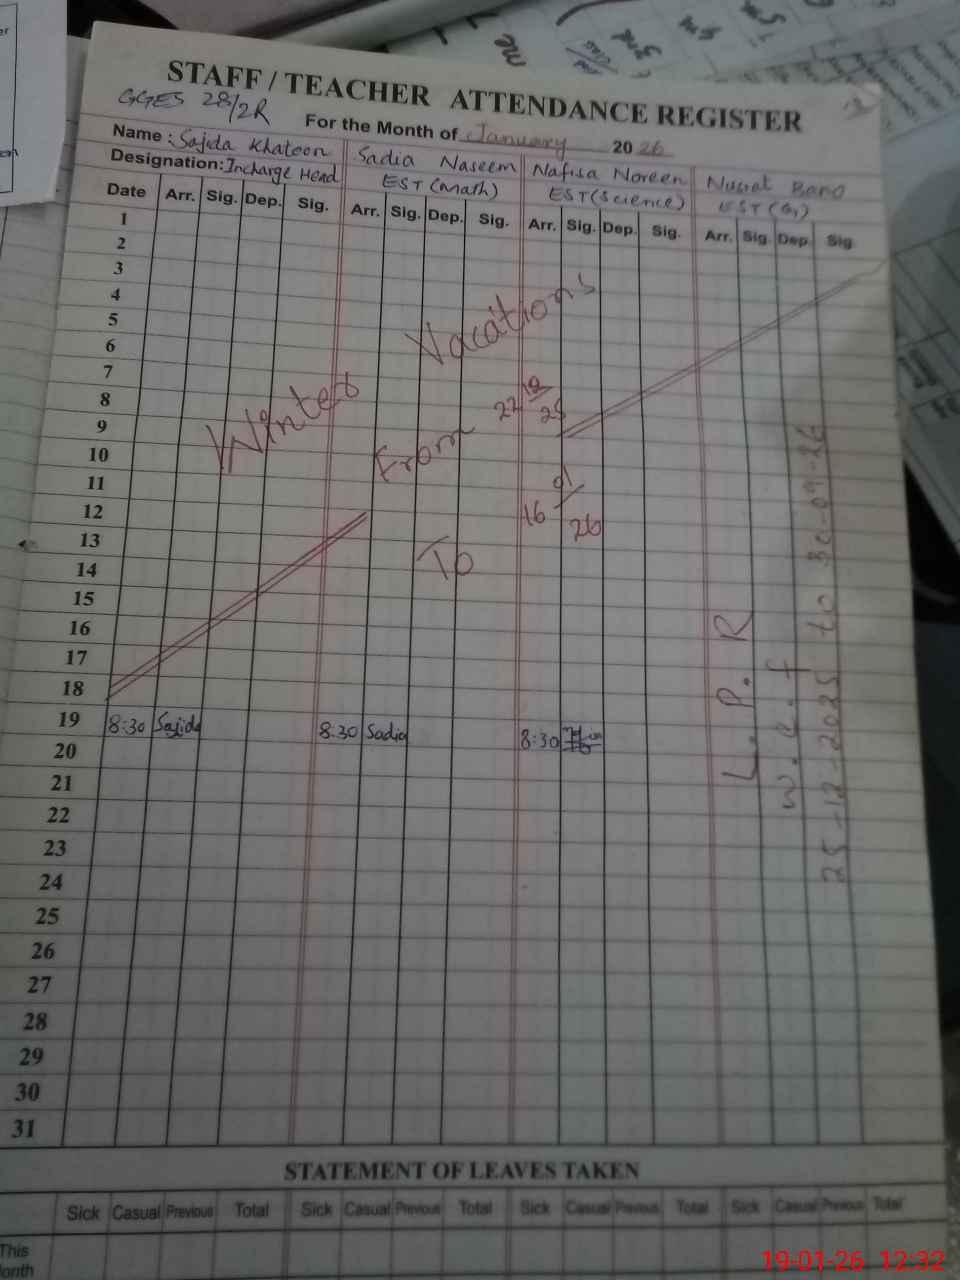 STAFF / TEACHER ATTENDANCE REGISTER
GGES 28/2R
For the Month of January 2026
Name : Sajida Khatoon Sadia Naseem Nafisa Noreen Nusrat Bano
Designation: Incharge Head EST (Math) EST (Science) EST (G)
Date Arr. Sig. Dep. Sig. Arr. Sig. Dep. Sig. Arr. Sig. Dep. Sig. Arr. Sig. Dep. Sig.
1
2
3
4
5
6
7
8
9
10
11
12
13
14
15
16
17
18
Winter Vacations
From 22/12/25
To 16/01/26
19 8:30 Sajida 8:30 Sadia 8:30
20
21
22
23
24
25
26
27
28
29
30
31
L.P.R
w.e.f
25-12-2025 to 30-09-26
STATEMENT OF LEAVES TAKEN
Sick Casual Previous Total Sick Casual Previous Total Sick Casual Previous Total Sick Casual Previous Total
This
onth
19-01-26 12:32